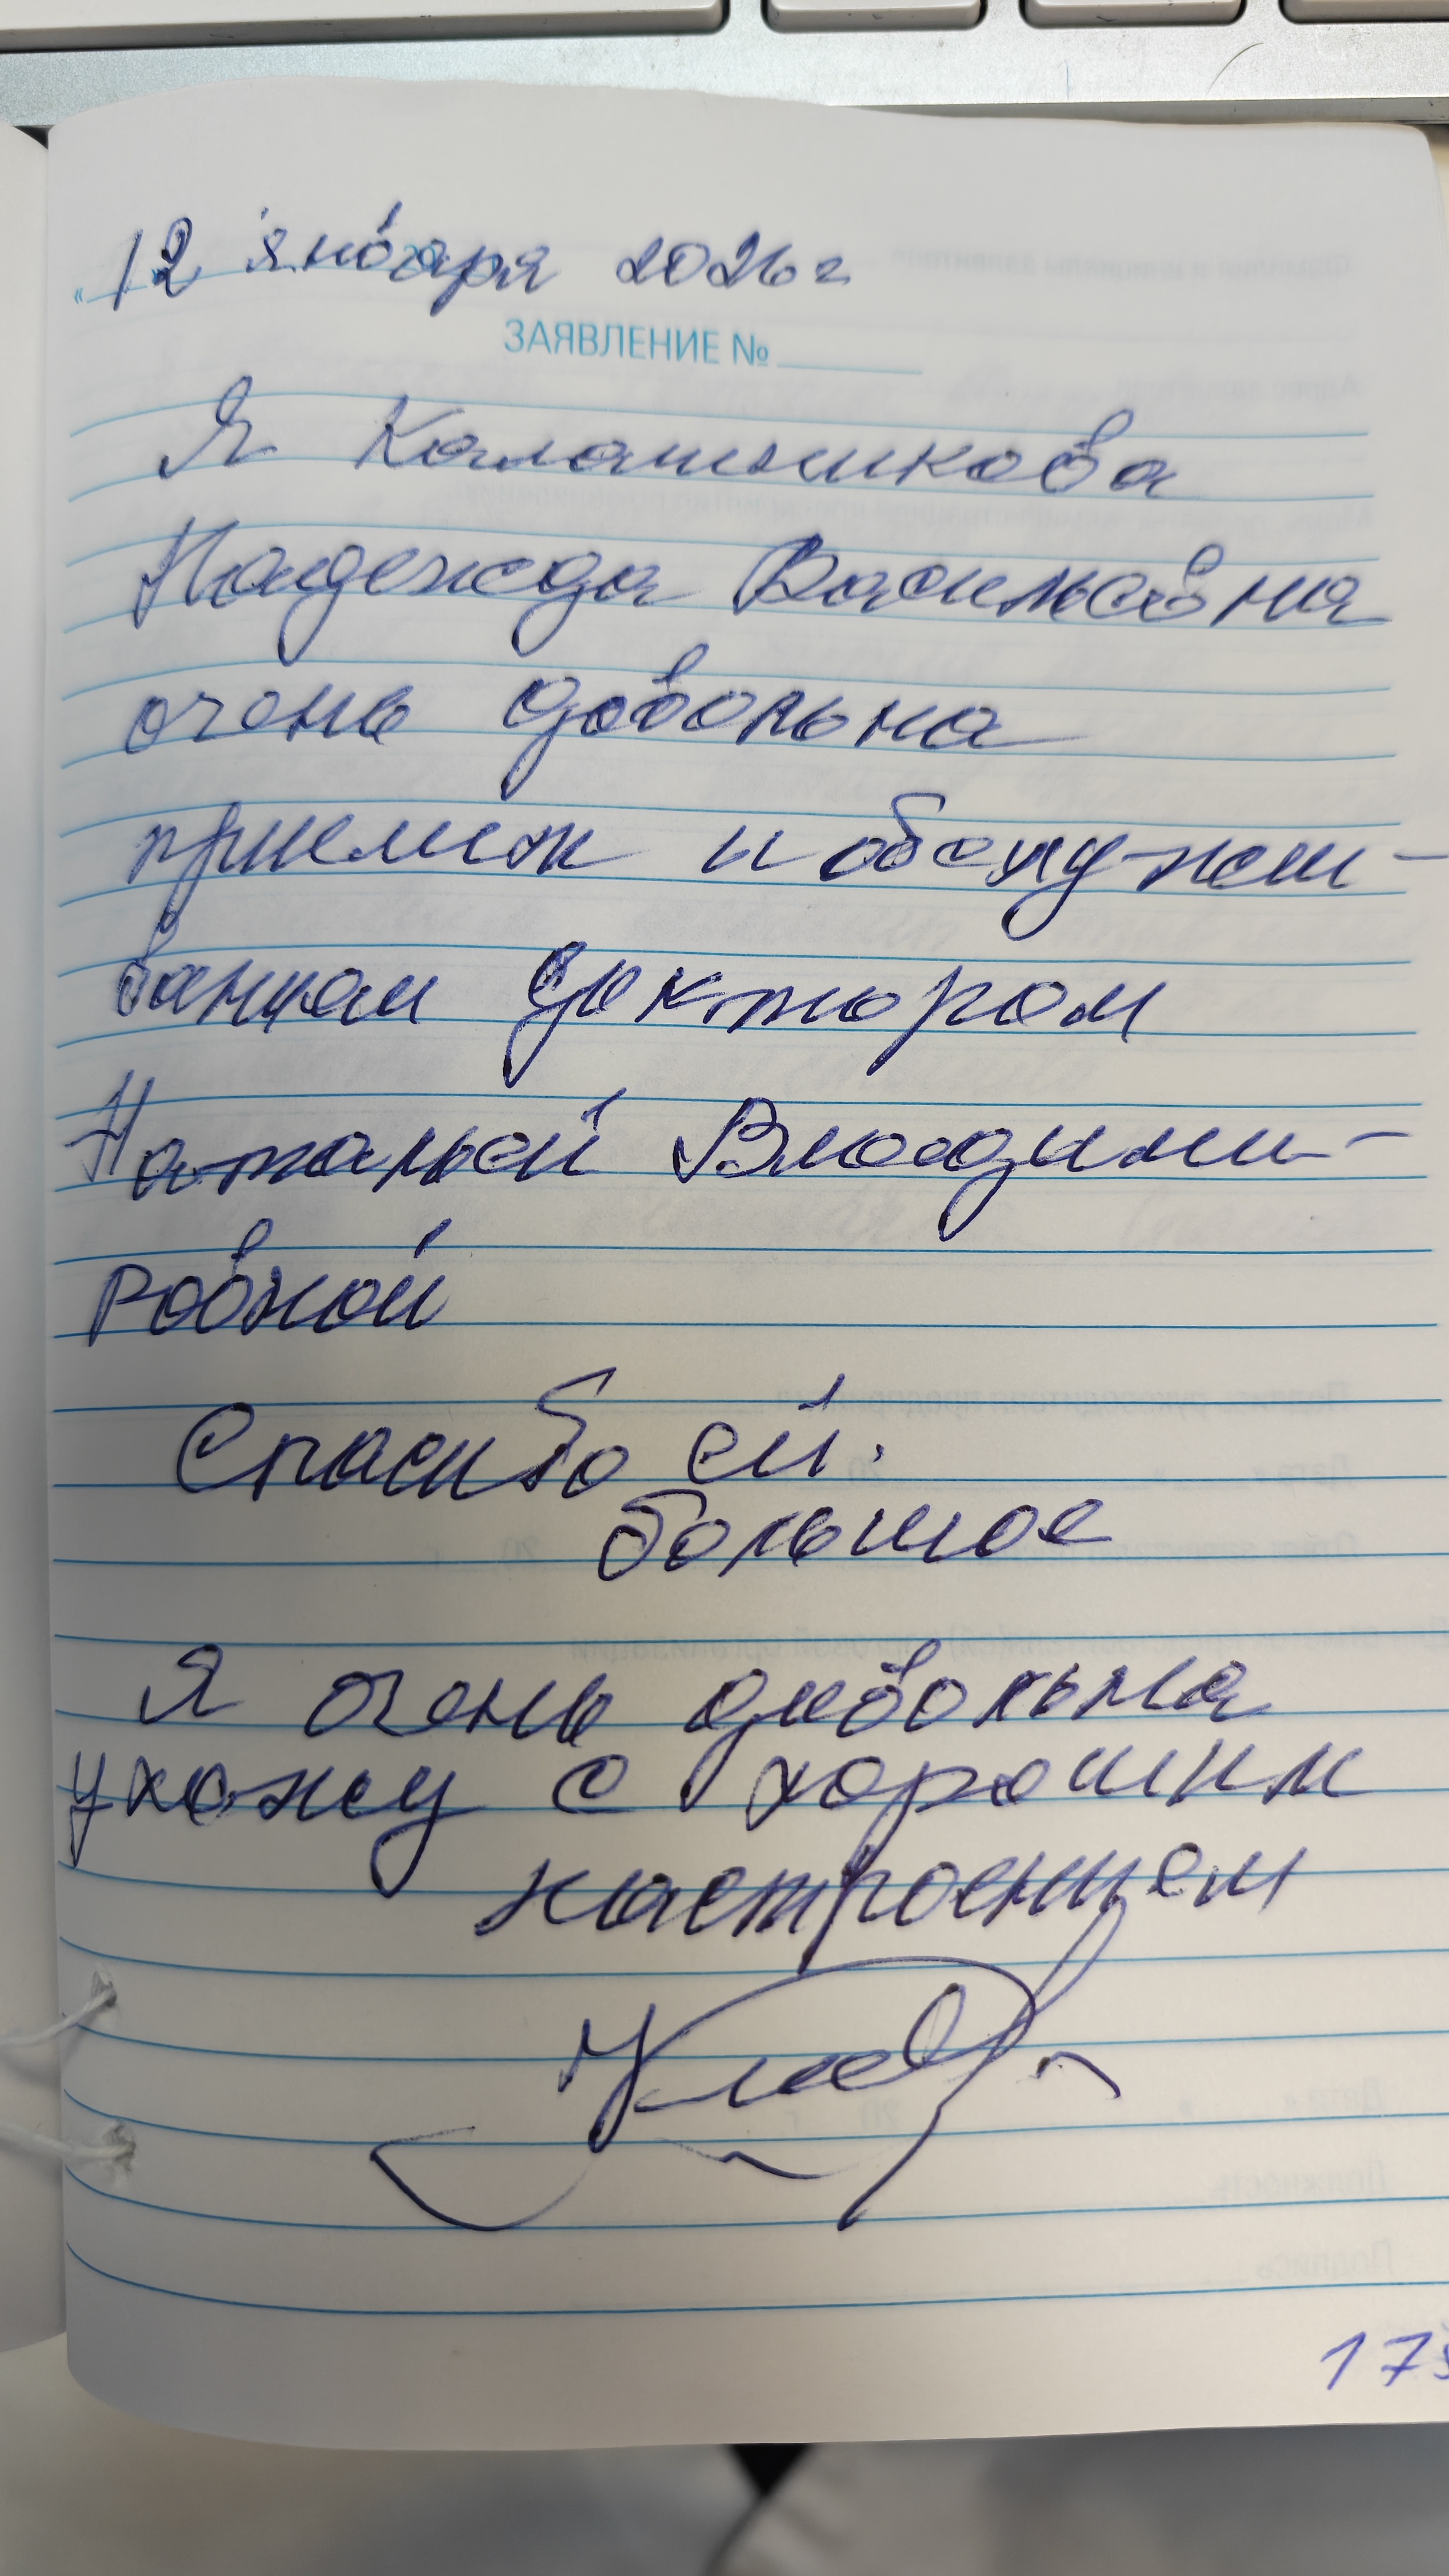 12 января 2026 г
ЗАЯВЛЕНИЕ №
Я Калашникова
Надежда Васильевна
очень довольна
приемом и обслужи-
ванием доктором
Натальей Владими-
ровной
Спасибо ей.
большое
Я очень довольна
ухожу с хорошим
настроением